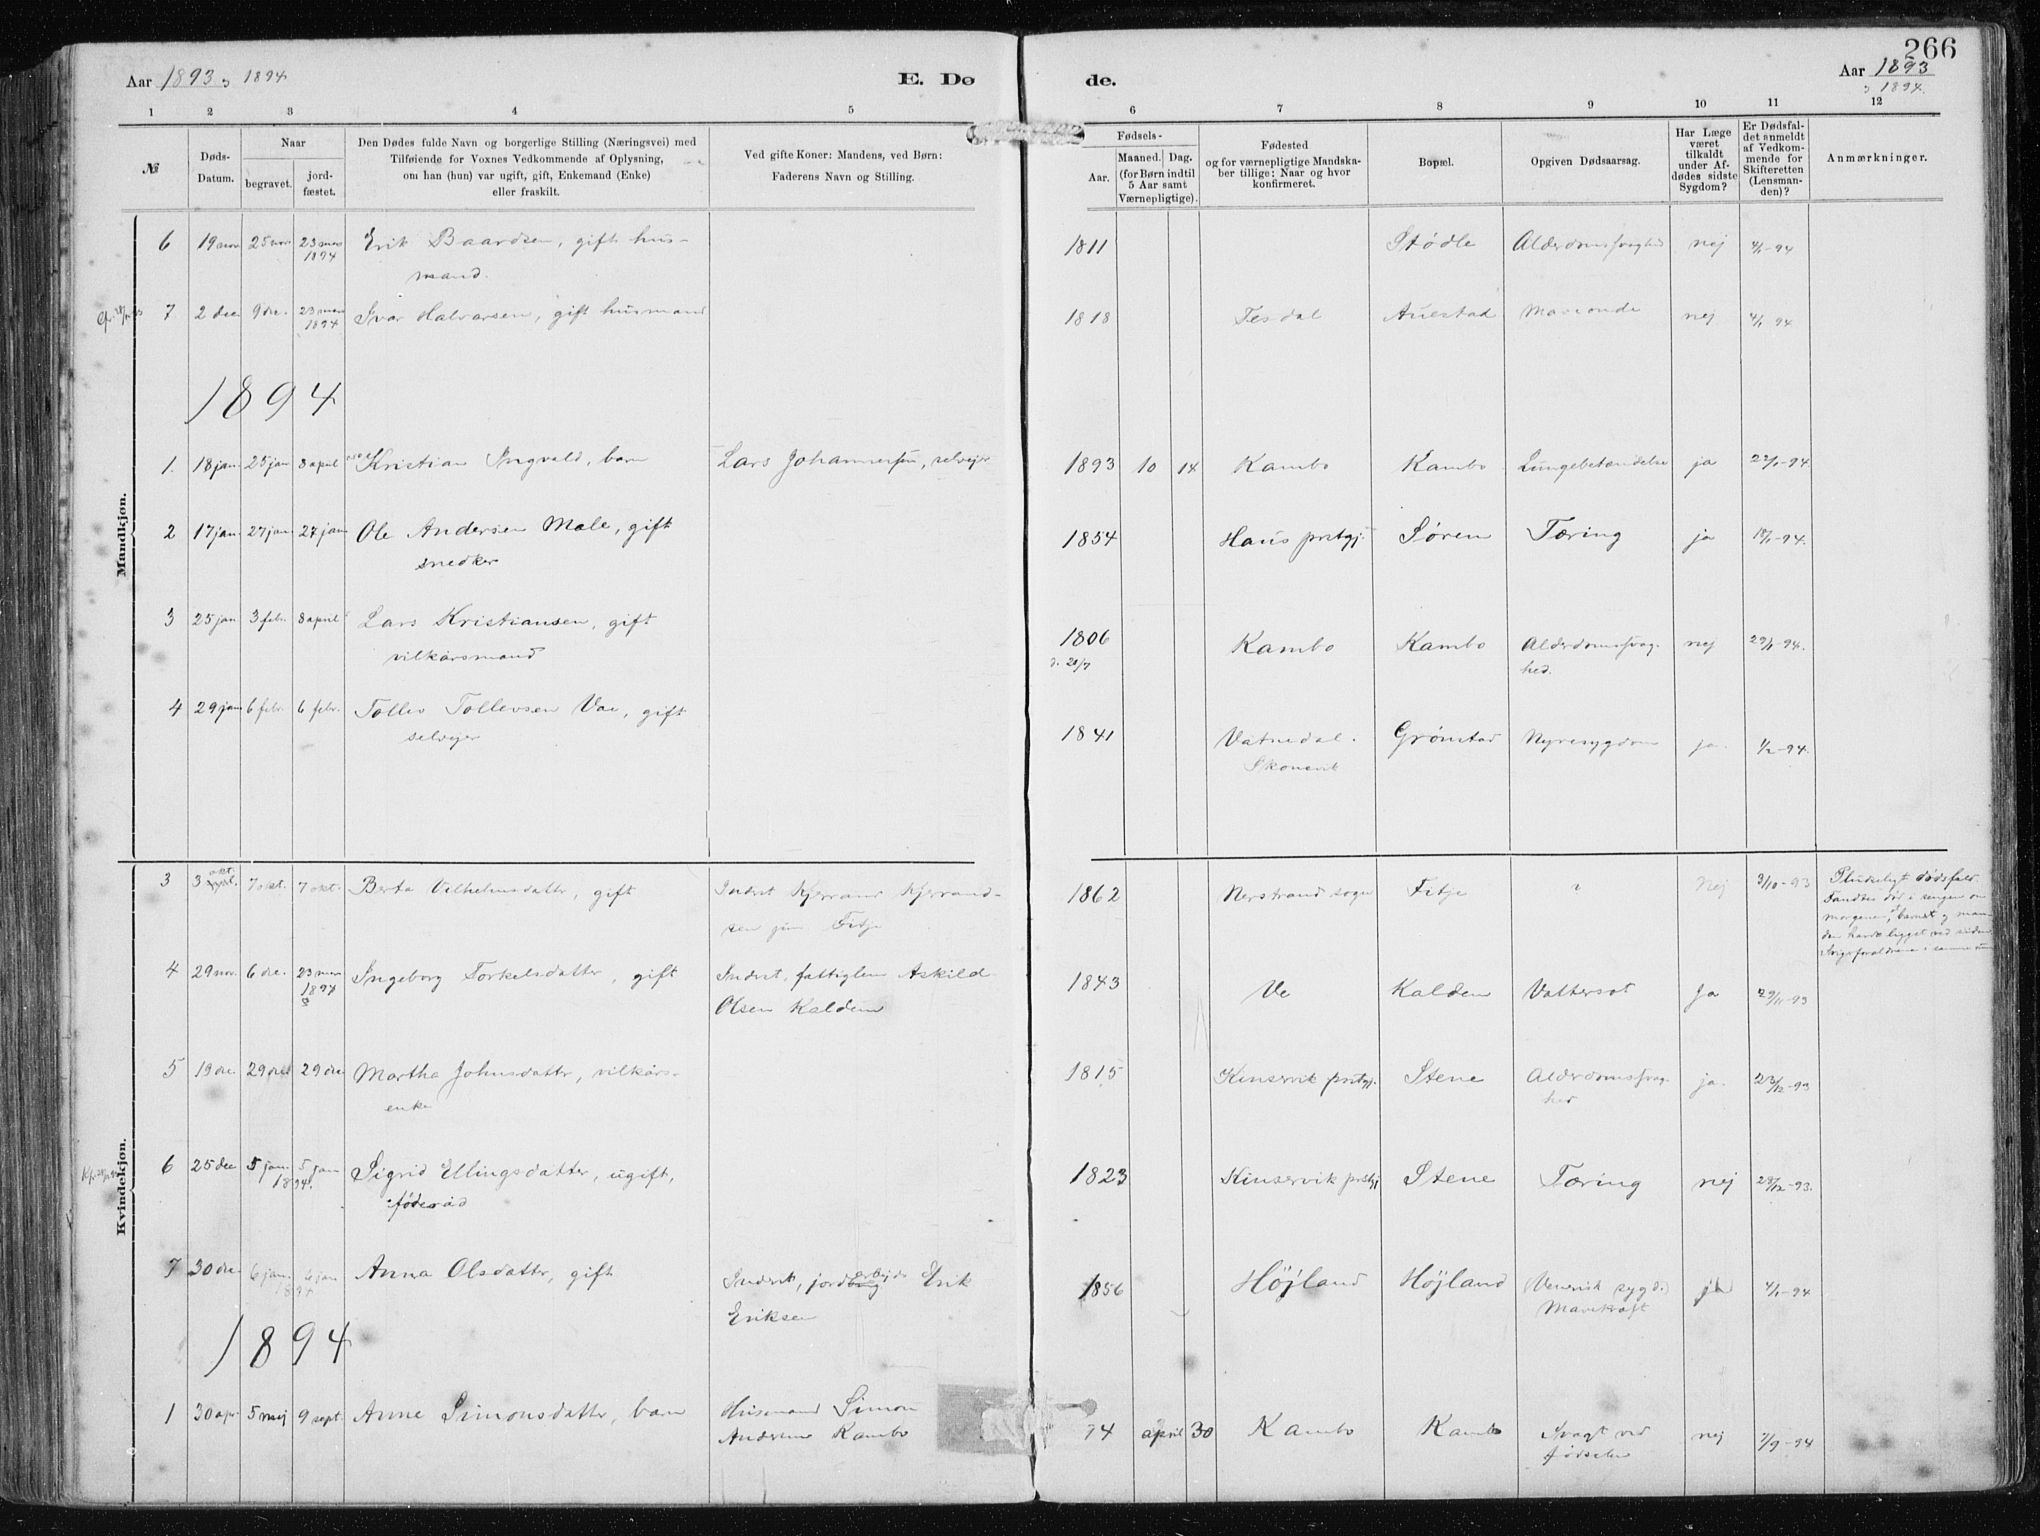 266
Aar 1893 o 1894
E. Dø
de.
Aar 1893
o 1894.
1 2 3 4 5 6 7 8 9 10 11 12
№
Døds-
Datum.
Naar
begravet.
jord-
fæstet.
Den Dødes fulde Navn og borgerlige Stilling (Næringsvei) med
Tilføiende for Voxnes Vedkommende af Oplysning,
om han (hun) var ugift, gift, Enkemand (Enke)
eller fraskilt.
Ved gifte Koner: Mandens, ved Børn:
Faderens Navn og Stilling.
Fødsels-
Aar.
Maaned. Dag.
(for Børn indtil
5 Aar samt
Værnepligtige).
Fødested
og for værnepligtige Mandska-
ber tillige: Naar og hvor
konfirmeret.
Bopæl.
Opgiven Dødsaarsag.
Har Læge
været
tilkaldt
under Af-
dødes sidste
Sygdom?
Er Dødsfal-
det anmeldt
af Vedkom-
mende for
Skifteretten
(Lensman-
den)?
Anmærkninger.
Mandkjøn.
6 19 nov. 25 nov 23 mars Erik Baardsen, gift hus- 1811 Stødle Alderdomssvaghed nej 4/1-94
1894 mand.
7 2 dec 9 dec. 23 mars Ivar Halvarsen, gift husmand 1818 Tesdal Auestad nej 4/1 94
1894
1894
1. 18 jan. 25 jan 8 april Kristian Ingvald, barn Lars Johannessen, selvejer 1893 10 14 Kambo Kambo Lungebetændelse ja 22/1-94.
2 17 jan. 27 jan 27 jan Ole Andersen Male, gift 1854 Haus prstgj. Søren Tæring ja 19/1-94.
snedker
3 25 jan 3 febr. 8 april Lars Kristiansen, gift 1806 Kambo Kambo Alderdomssvag- nej 29/1-94.
vilkårsmand d. 20/7 hed.
4 29 jan 6 febr. 6 febr. Tollev Tollevsen Vae, gift 1841 Vatnedal. Grønstad Nyresygdom ja. 1/2-94.
selvejer Skonevik
Kvindekjøn.
3 3 okt. 7 okt. 7 okt. Berta Vilhelmsdatter, gift Inderst Kjerrand Kjerrand- 1862 Nerstrand sogn Fitje ? Nej 3/10-93 Pludseligt dødsfald.
sen jun Fitje
Fandtes død i sengen om
morgenen, barnet og man-
den havde ligget ved siden
Svigerforældrene i samme rum
4 29 nov. 6 dec. 23 mars Ingeborg Torkelsdatter, gift Inderst, fattiglem Askild 1843 Ve Kalden Vattersot Ja 29/11-93
1894 Olsen Kalden
5 19 dec. 29 dec 29 dec Martha Johnsdatter, vilkårs- 1815 Kinservik prstgj. Stene Alderdomssvag- ja. 23/12-93
enke hed
6 25 dec 5 jan. 5 jan Sigrid Ellingsdatter, ugift, 1823 Kinservik prstgj Stene Tæring nej 28/12-93.
1894. føderåd
7 30 dec. 6 jan. 6 jan Anna Olsdatter, gift Inderst, jordarbejder Erik 1856 Højland Højland (Venerisk sygd.) ja 4/1-94
1894 Eriksen Mavekræft
1894
1 30 apr. 5 maj 9 sept. Anne Simonsdatter, barn Husmand Simon 94 april 30 Kambo Kambo Svagt ved nej 7/9-94
Andersen Kambo fødselen